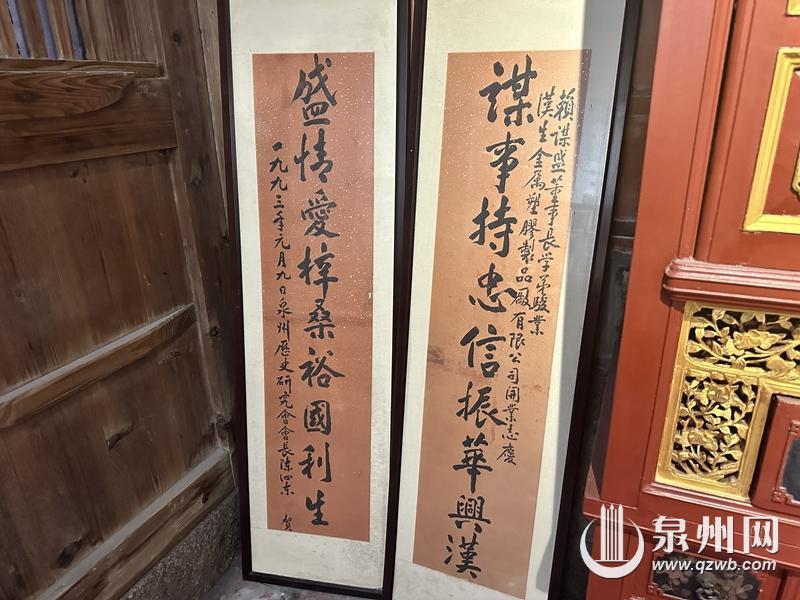 賴謀盛董事長学弟駿業
漢生金属塑膠製品厰有限公司開業志慶
謀事持忠信振華興漢
盛情愛梓桑裕國利生
一九九三年元月九日泉州歷史研究會會長陈泗东 賀
泉州网
www.qzwb.com